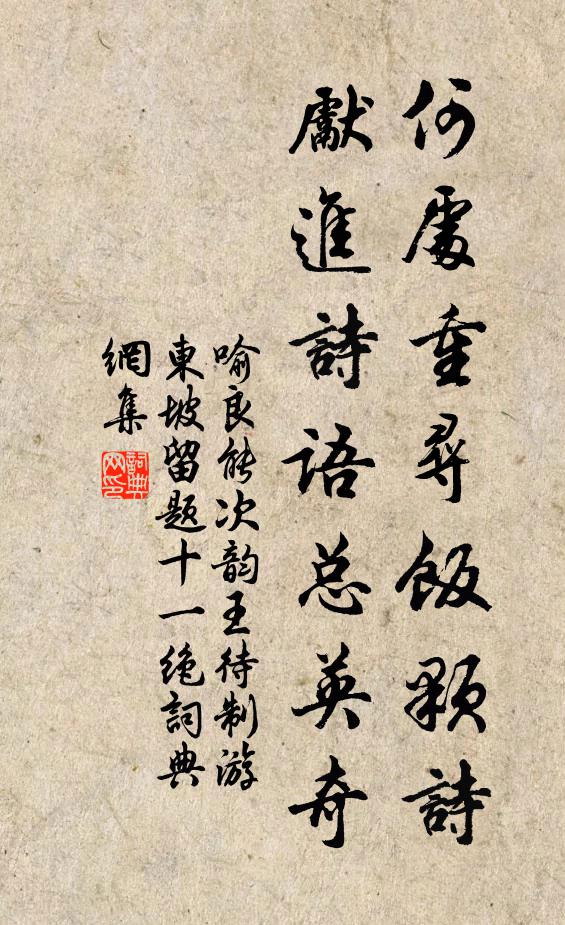 何處重尋飯顆詩
獻進詩语总英奇
喻良能次韵王待制游
東坡留题十一绝詞典
網集
詞典网印